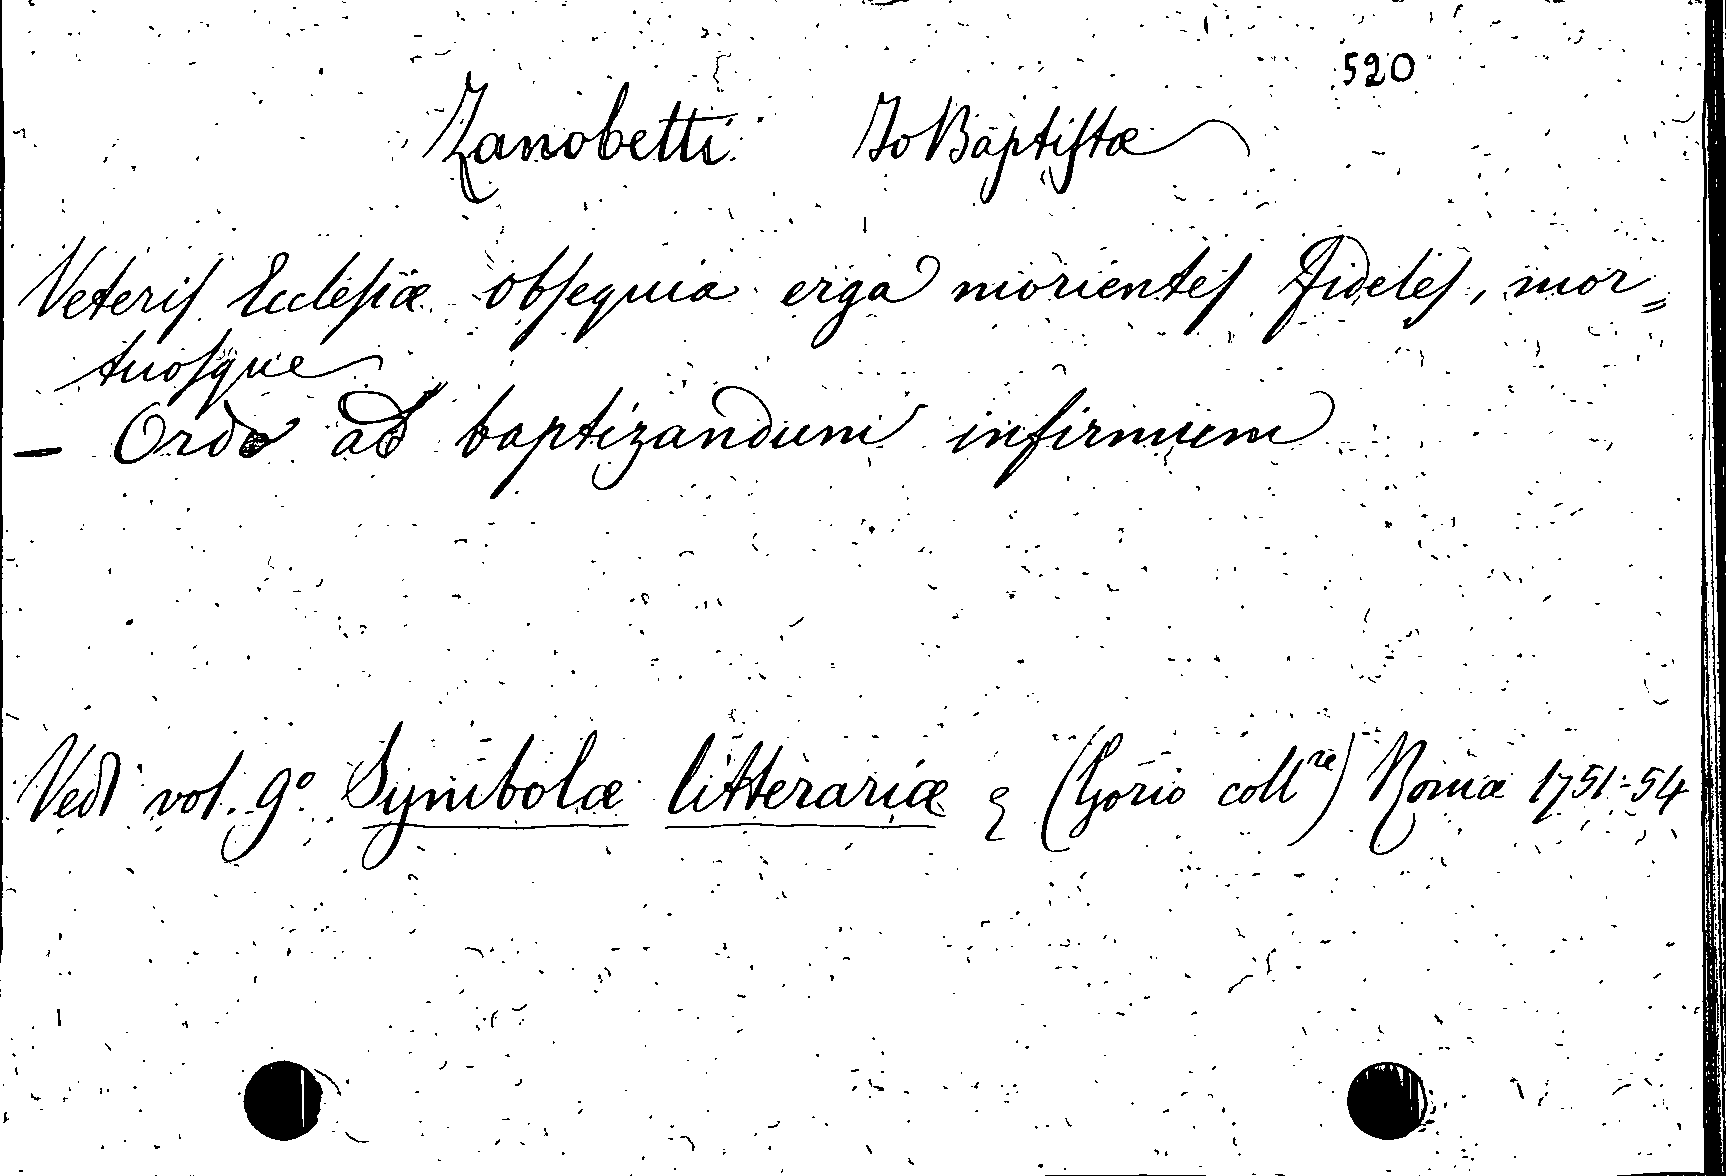 520
Zanobetti Jo Baptistæ
Veteris Ecclesiæ obsequia erga morientes Fideles, mor=
tuosque
— Ordo ad baptizandum infirmum
Vedi vol. 9º. Symbolæ litterariæ & (Gorio collre) Romæ 1751-54